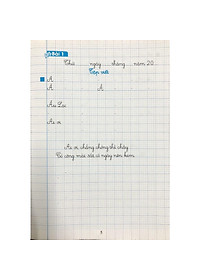 Thứ ngày tháng năm 20
Tập viết
A
A A
Au Lạc
Ai ơi
Ai ơi, chẳng chóng thì chầy
Có công mài sắt có ngày nên kim.
3